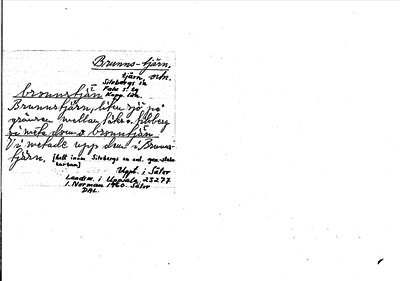 Brunns-tjärn,
tjärn, om.
Silvbergs sn
Falu s. lg
Kopp. län.
bronnstjän
Brunnstjärn, liten sjö på
gränsen mellan Säter o. Silvberg
Vi metade upp dem i Brunns-
tjärn. [helt inom Silvbergs sn enl. gen.stabs-
kartan]
Uppt. i Säter
Landsm. i Uppsala 23277
I. Norman 1960. Säter
DAL.